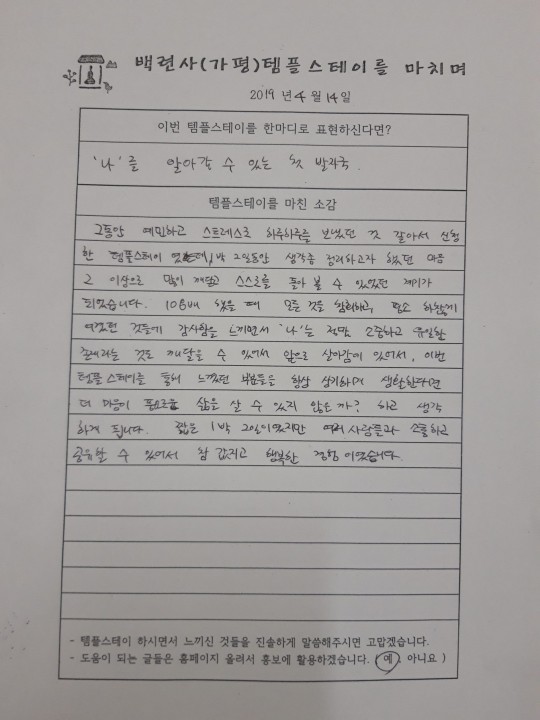 백련사(가평)템플스테이를 마치며
2019 년 4 월 14 일
이번 템플스테이를 한마디로 표현하신다면?
'나'를 알아갈 수 있는 첫 발자국.
템플스테이를 마친 소감
그동안 예민하고 스트레스로 하루하루를 보냈던 것 같아서 신청
한 템플스테이 였는데, 1박 2일동안 생각좀 정리하고자 했던 마음
그 이상으로 많이 깨닫고 스스로를 돌아 볼 수 있었던 계기가
되었습니다. 108배 했을 때 모든 것을 잊어버리고, 평소 하찮게
여겼던 것들에 감사함을 느끼면서 '나'는 정말 소중하고 유일한
존재라는 것도 깨달을 수 있어서 앞으로 살아감에 있어서, 이번
템플스테이를 통해 느꼈던 부분들을 항상 상기하며 생활한다면
더 마음이 풍요로운 삶을 살 수 있지 않은가? 하고 생각
하게 됩니다. 짧은 1박 2일이였지만 여러 사람들과 소통하고
공유할 수 있어서 참 값지고 행복한 경험이였습니다.
- 템플스테이 하시면서 느끼신 것들을 진솔하게 말씀해주시면 고맙겠습니다.
- 도움이 되는 글들은 홈페이지 올려서 홍보에 활용하겠습니다. ( 예, 아니요 )